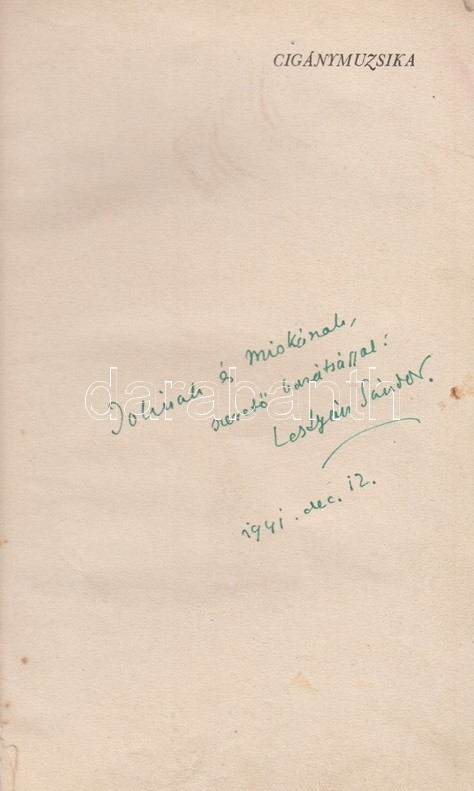 CIGÁNYMUZSIKA
Jolinak és Miskának,
szerető barátsággal:
Leszlyán Sándor.
1941. dec. 12.
darabanth